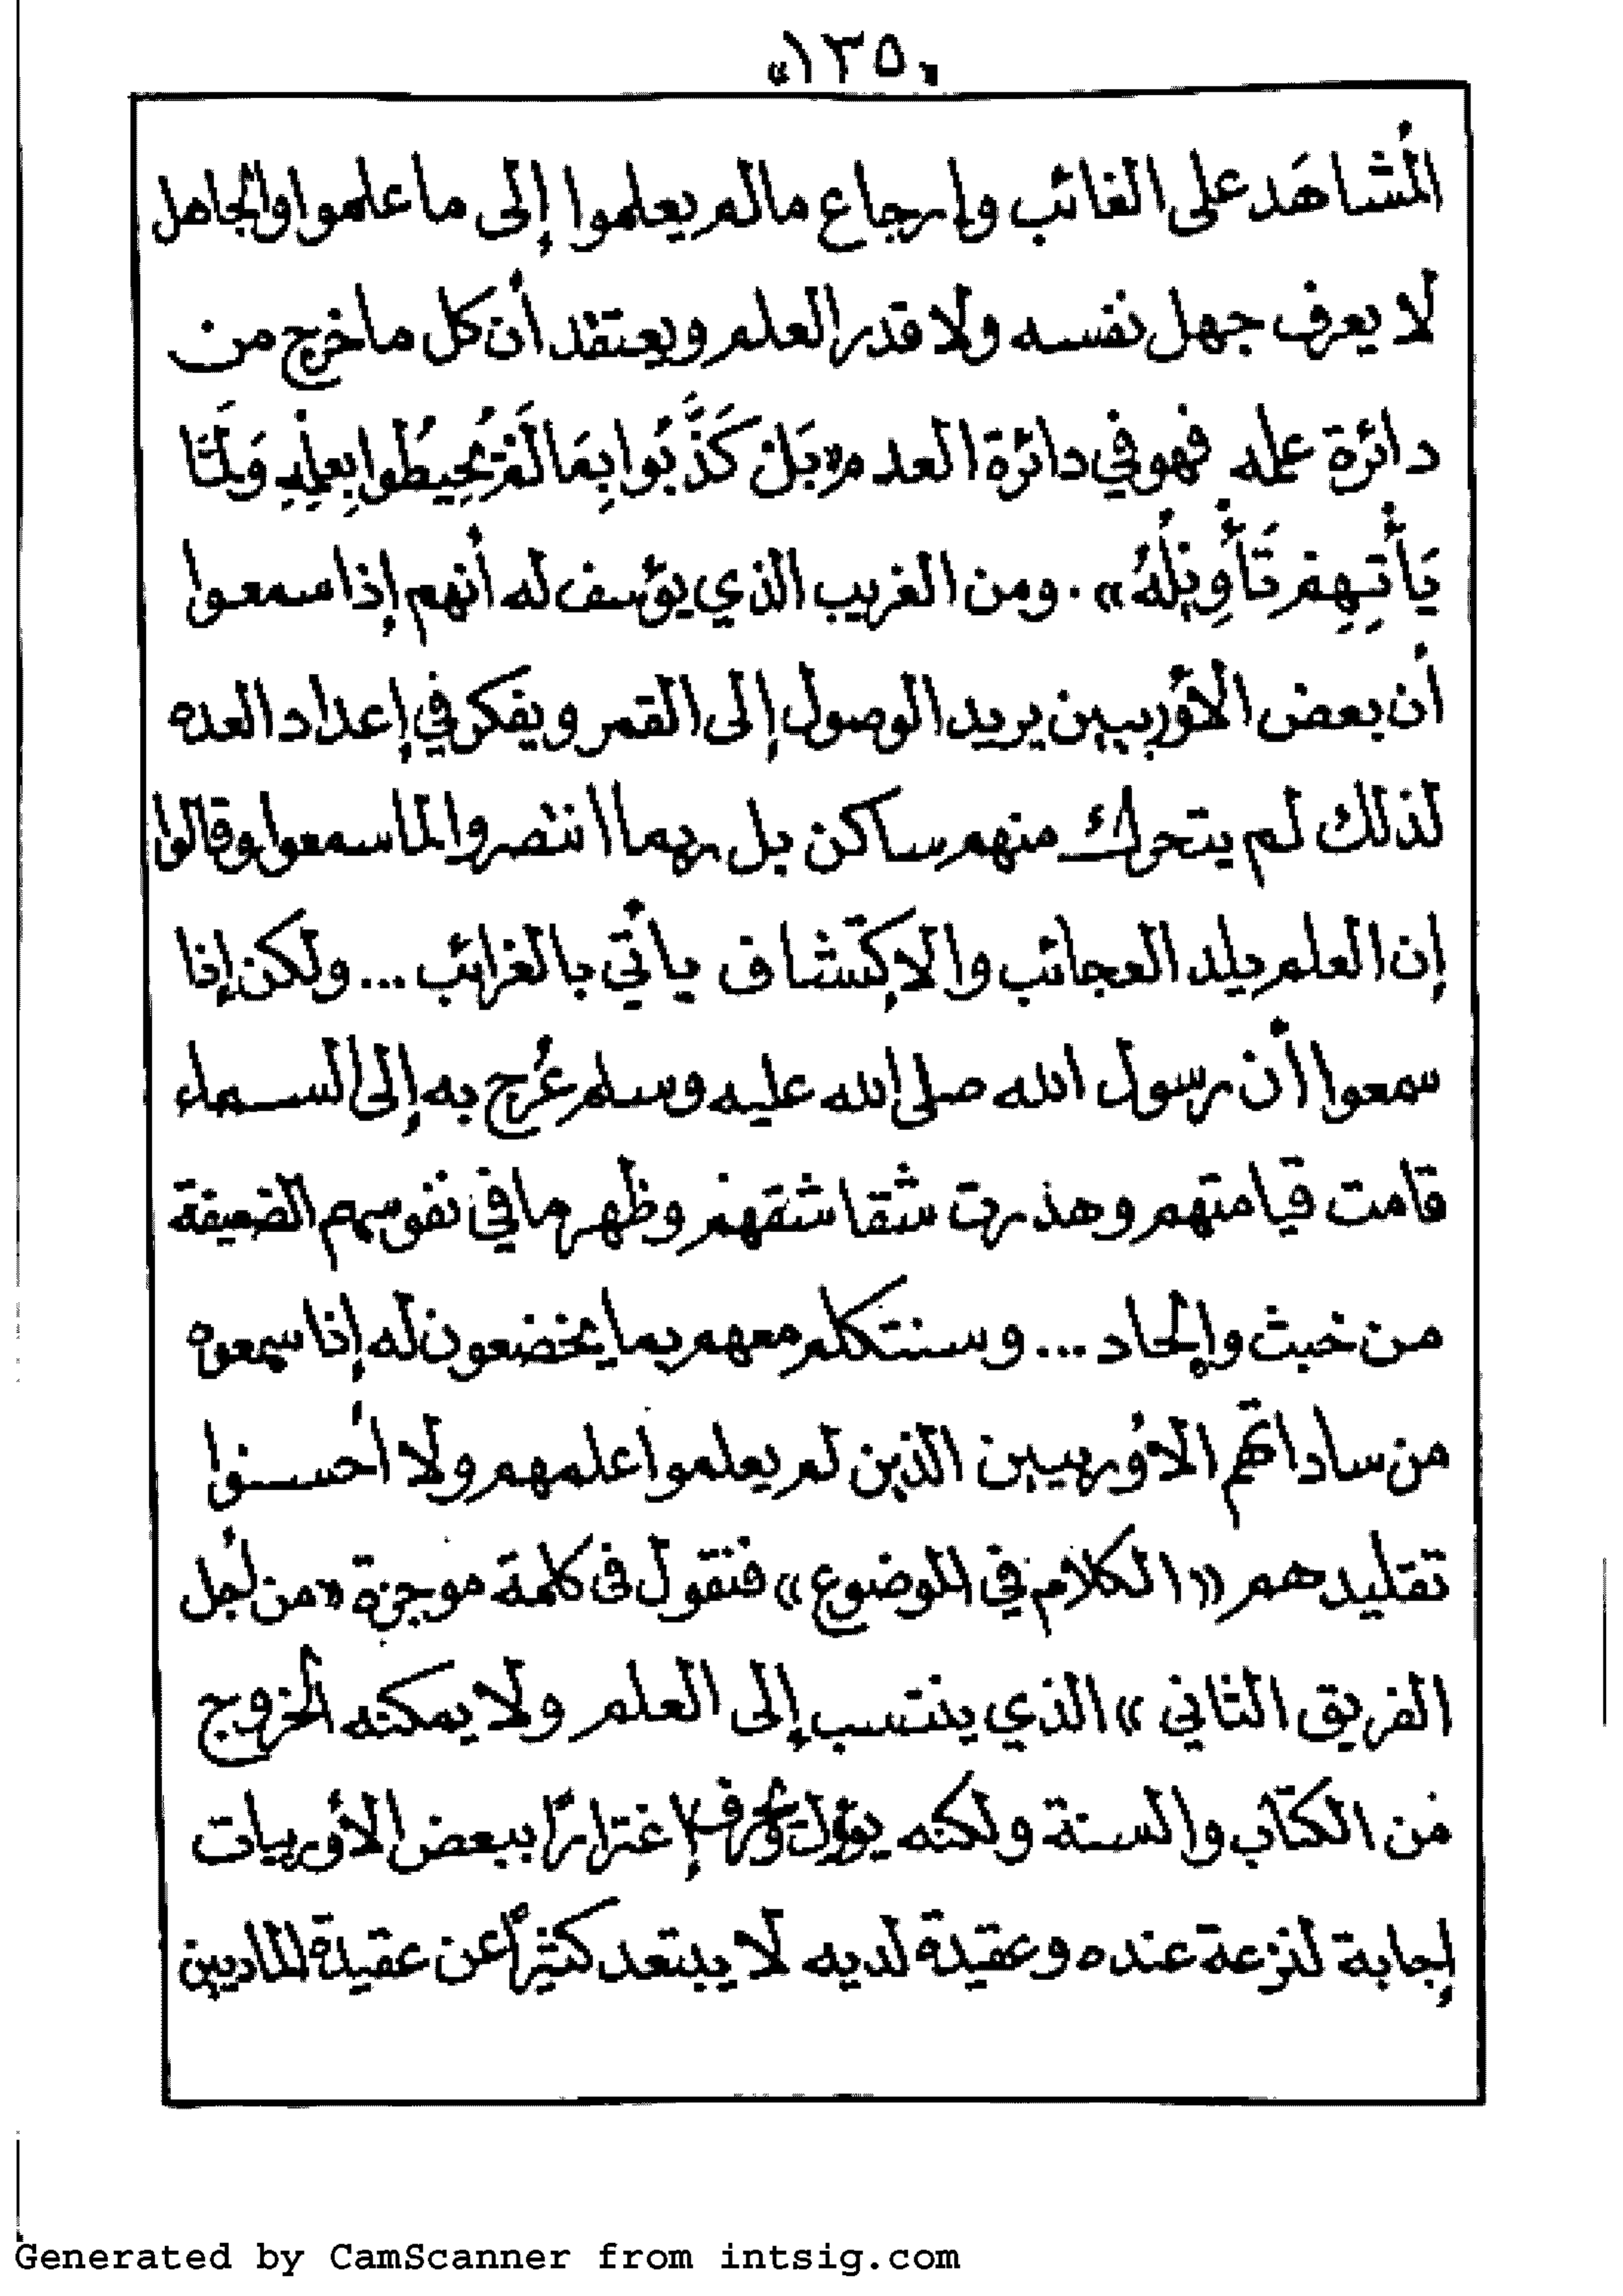 «١٣٥»
المُشاهَد على الغائب وإرجاع مالم يعلموا إلى ما علموا والجاهل
لا يعرف جهل نفسه ولا قدر العلم ويعتقد أن كل ما خرج من
دائرة علمه فهو في دائرة العدم «بَلْ كَذَّبُوا بِمَا لَمْ يُحِيطُوا بِعِلْمِهِ وَلَمَّا
يَأْتِهِمْ تَأْوِيلُهُ» . ومن الغريب الذي يؤسف له أنهم إذا سمعوا
أن بعض الأوُربيين يريد الوصول إلى القمر ويفكر في إعداد العده
لذلك لم يتحرك منهم ساكن بل ربما انتصروا لما سمعوا وقالوا
إن العلم يلد العجائب والإكتشاف يأتي بالغرائب ... ولكن إذا
سمعوا أن رسول الله صلى الله عليه وسلم عُرج به إلى السماء
قامت قيامتهم وهذرت شقاشقهم وظهر ما في نفوسهم الضعيفة
من خبث وإلحاد ... وسنتكلم معهم بما يخضعون له إذا سمعوه
من ساداتهم الاوُربيين الذين لم يعلموا علمهم ولا أحسنوا
تقليدهم «الكلام في الموضوع» فنقول فى كلمة موجزة «من أجل
الفريق الثاني» الذي ينتسب إلى العلم ولا يمكنه الخروج
من الكتاب والسنة ولكنه يؤول ويحرف إغترارًا ببعض الأوربيات
إجابة لنزعة عنده وعقيدة لديه لا يبتعد كثيرًا عن عقيدة الماديين
Generated by CamScanner from intsig.com